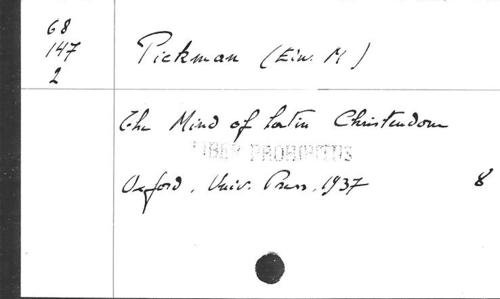 68
147
2
Pickman (Edw. M)
The Mind of Latin Christendom
LIBER PROHIBITUS
Oxford, Univ. Press, 1937 8